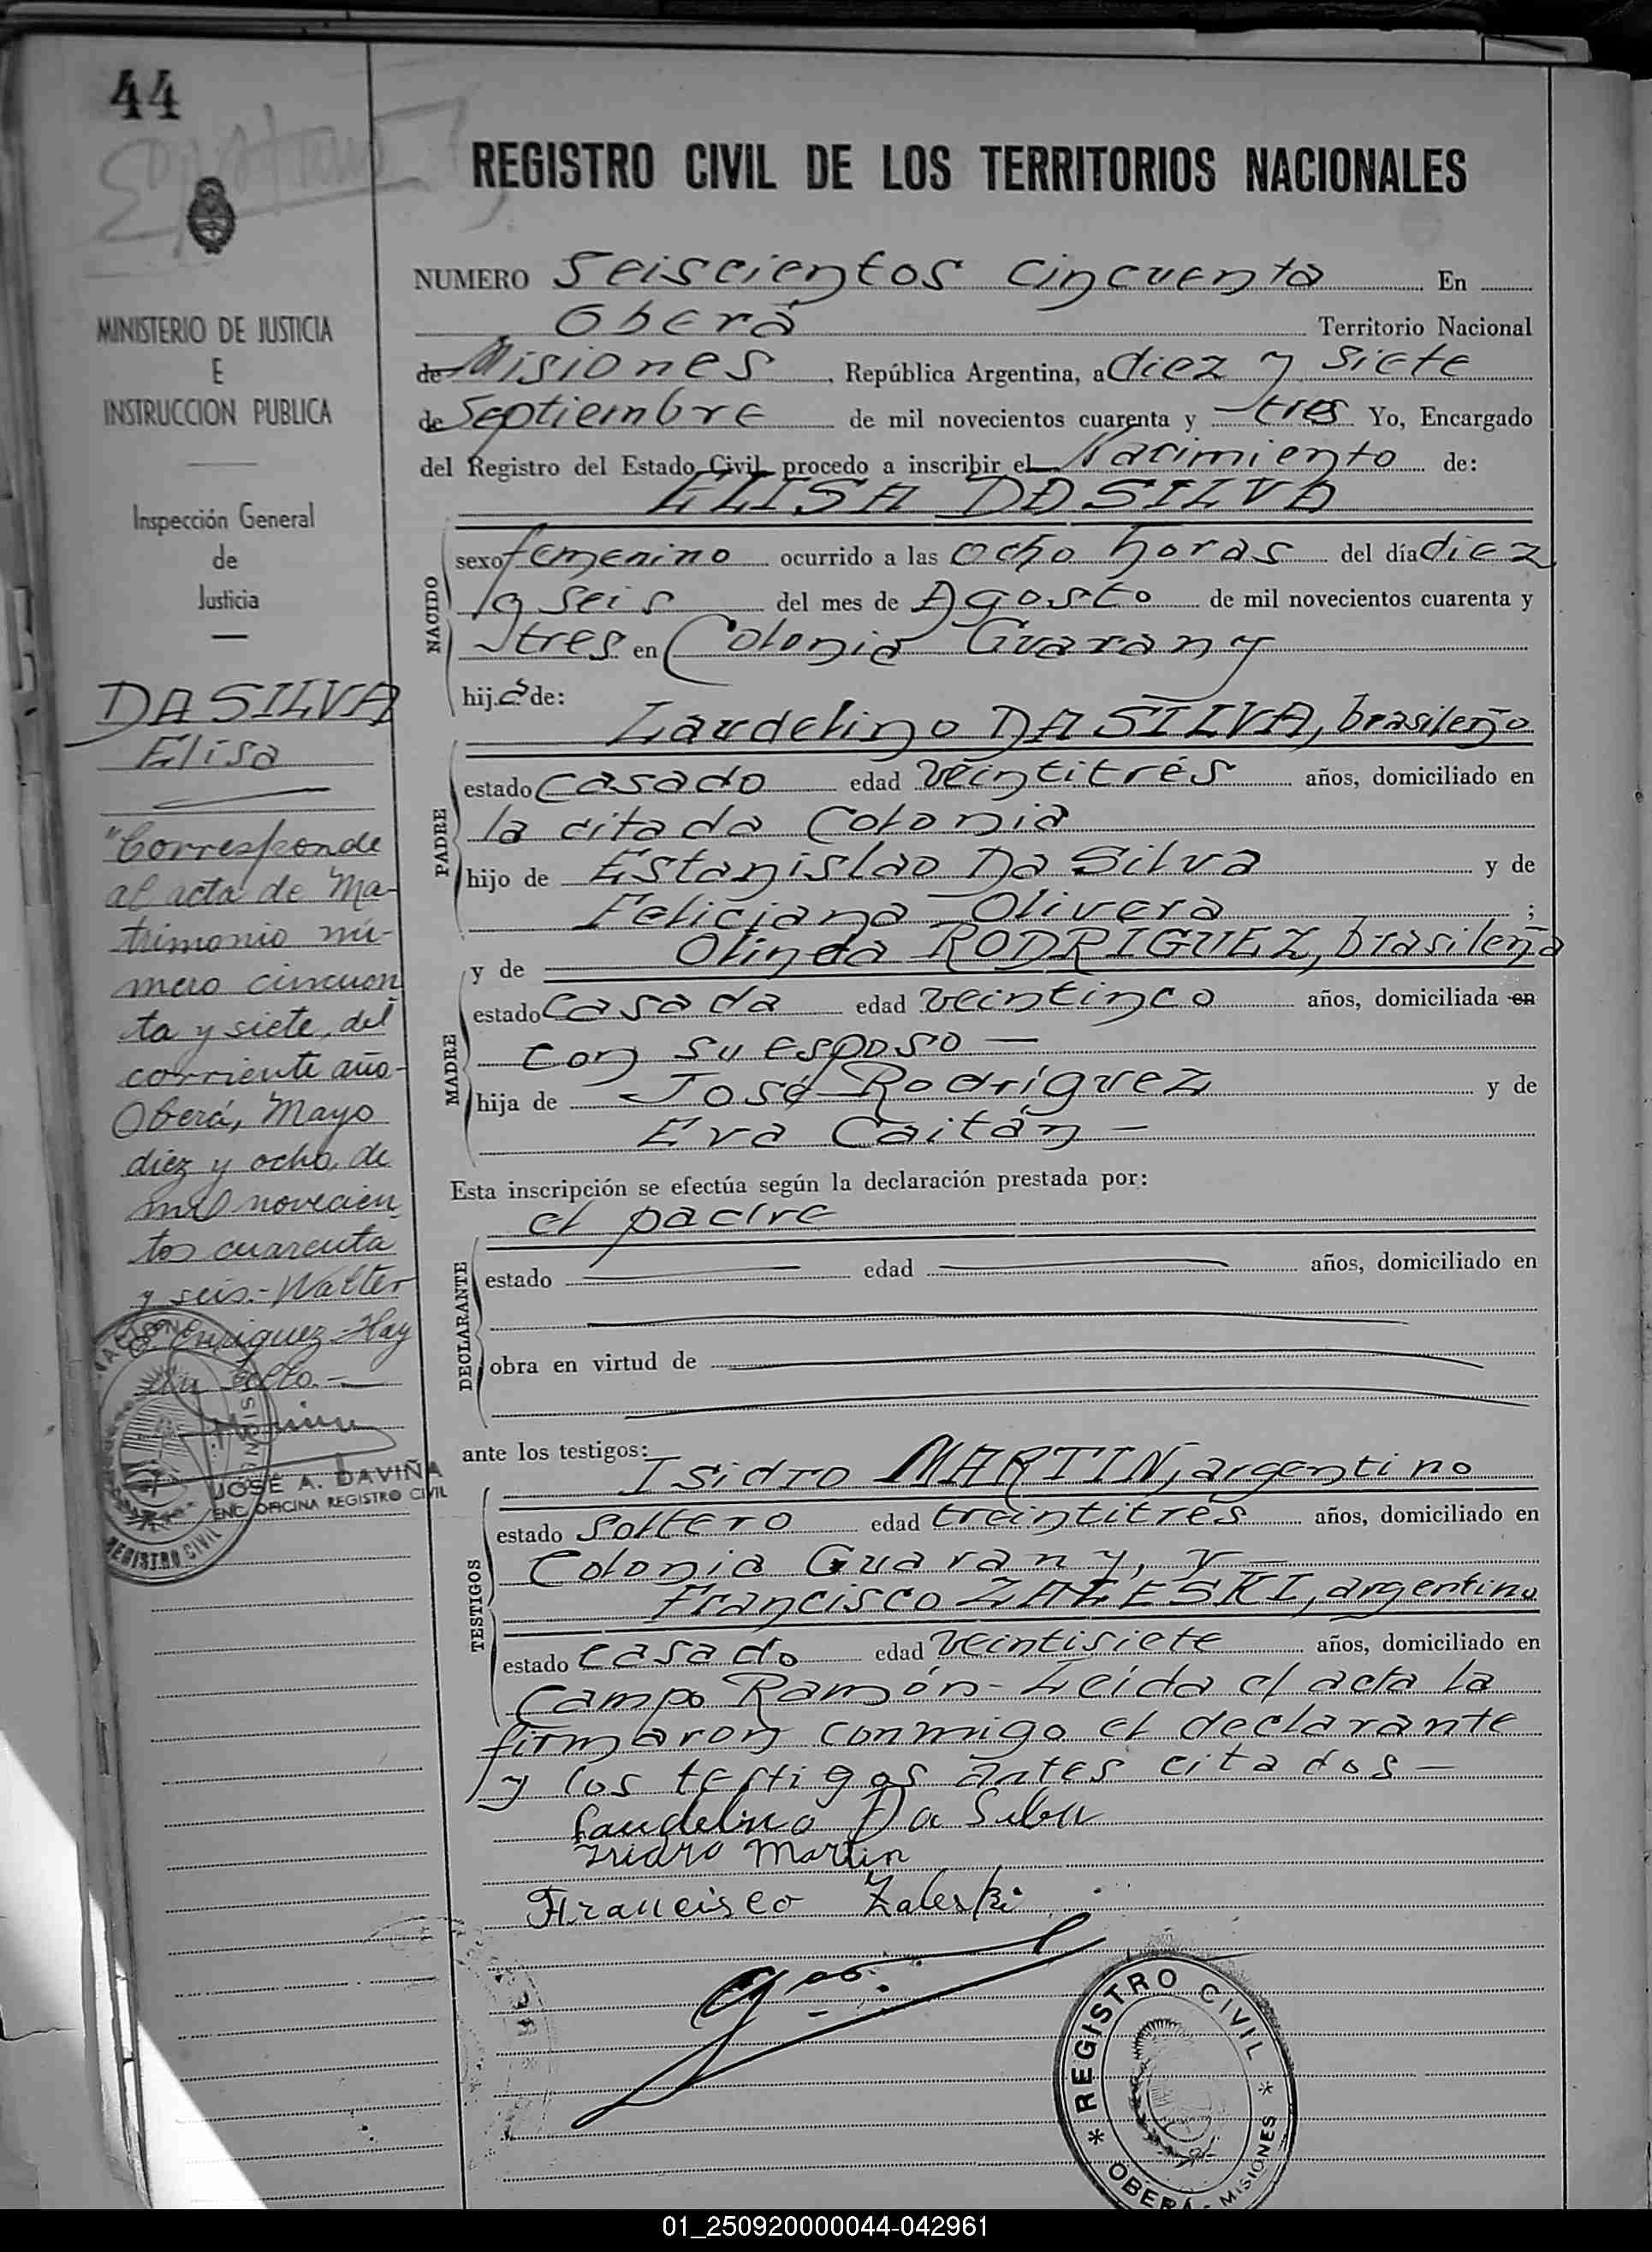 44
REGISTRO CIVIL DE LOS TERRITORIOS NACIONALES
MINISTERIO DE JUSTICIA
E
INSTRUCCION PUBLICA
Inspección General
de
Justicia
DA SILVA
Elisa
"Corresponde
al acta de Ma-
trimonio nú-
mero cincuen
ta y siete, del
corriente año-
Oberá, Mayo
diez y ocho de
mil novecien
tos cuarenta
y seis.- Walter
Enriquez - Hay
un sello.-
JOSE A. DAVIÑA
ENC. OFICINA REGISTRO CIVIL
REGISTRO CIVIL
NUMERO Seiscientos cincuenta En
Oberá Territorio Nacional
de Misiones, República Argentina, a diez y siete
de Septiembre de mil novecientos cuarenta y tres Yo, Encargado
del Registro del Estado Civil, procedo a inscribir el Nacimiento de:
ELISA DA SILVA
NACIDO
sexo femenino ocurrido a las ocho horas del día diez
y seis del mes de Agosto de mil novecientos cuarenta y
tres en Colonia Guarany
hija de:
PADRE
Laudelino DA SILVA, brasileño
estado casado edad veintitrés años, domiciliado en
la citada Colonia
hijo de Estanislao Da Silva y de
Feliciana Olivera ;
MADRE
y de Olinda RODRIGUEZ, brasileña
estado casada edad veintinco años, domiciliada en
con su esposo —
hija de José Rodríguez y de
Eva Caitán —
Esta inscripción se efectúa según la declaración prestada por:
el padre
DECLARANTE
estado edad años, domiciliado en
obra en virtud de
ante los testigos:
TESTIGOS
Isidro MARTIN, argentino
estado soltero edad treintitrés años, domiciliado en
Colonia Guarany, y —
Francisco ZALESKI, argentino
estado casado edad veintisiete años, domiciliado en
Campo Ramón- Leida el acta la
firmaron conmigo el declarante
y los testigos antes citados —
Laudelino Da Silva
Isidro Martin
Francisco Zaleski
* REGISTRO CIVIL *
OBERÁ - MISIONES
01_250920000044-042961